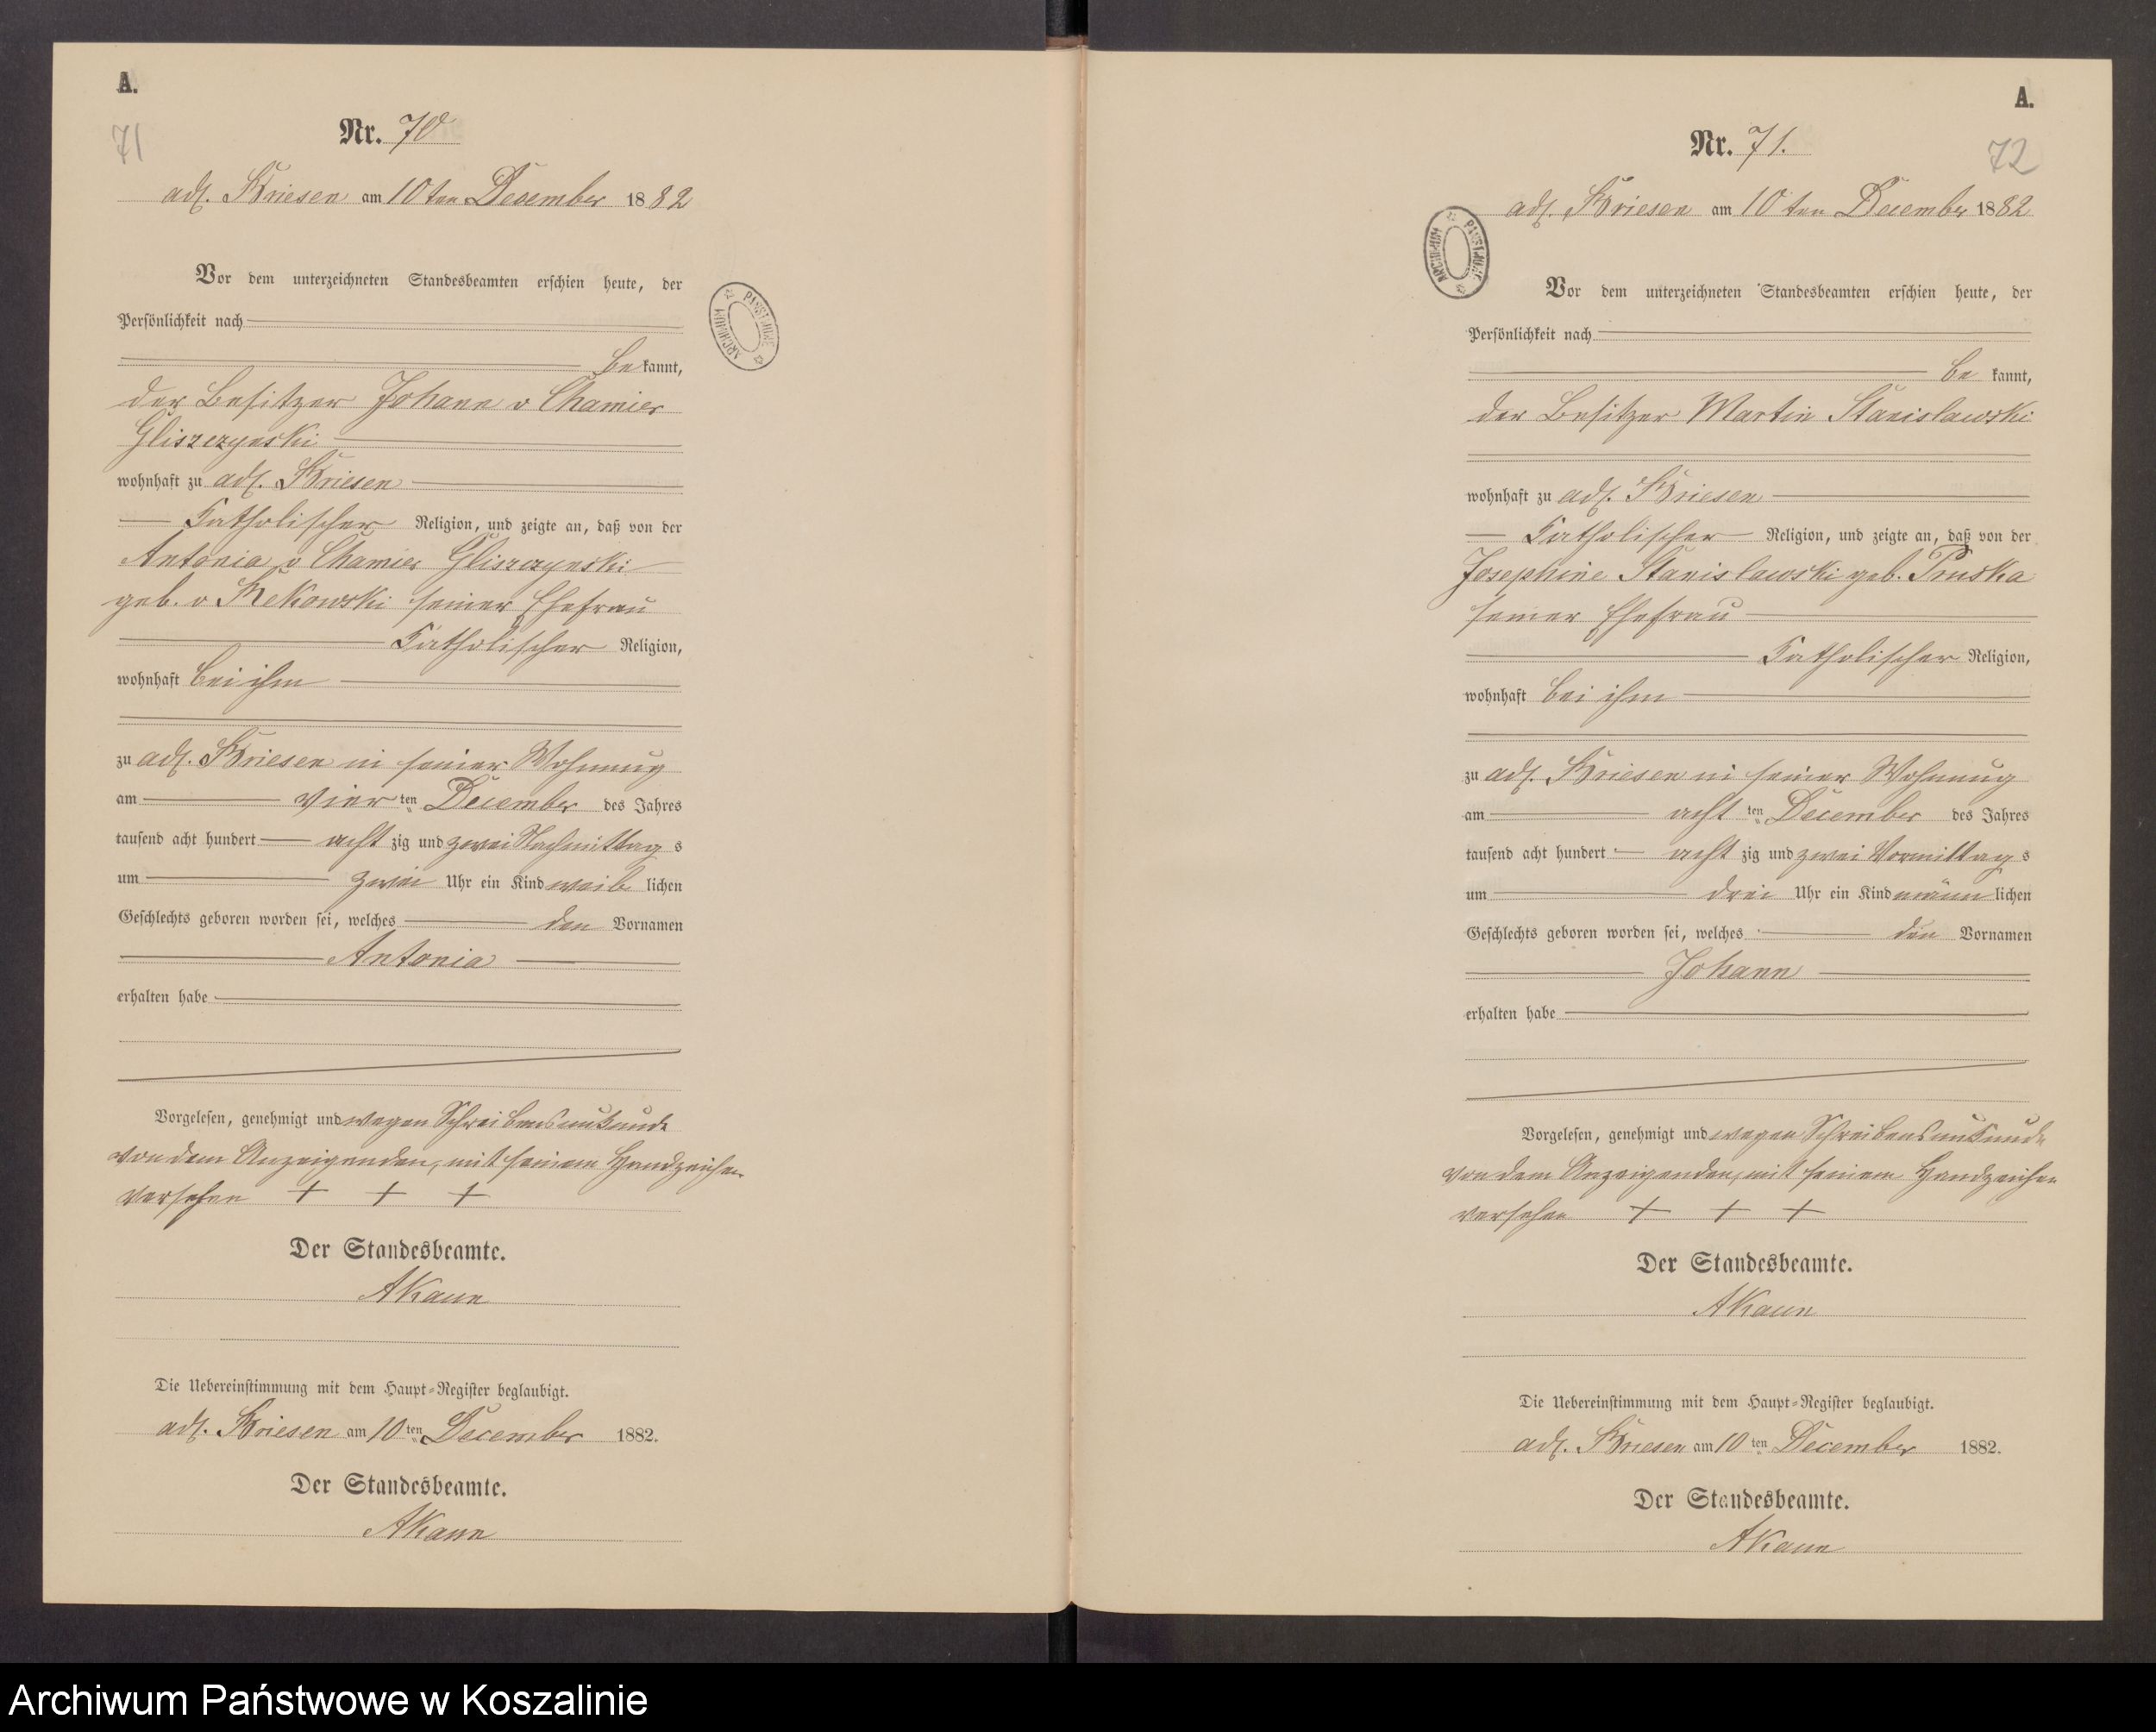 A.
71
Nr. 70
adl. Briesen am 10ten December 1882
Vor dem unterzeichneten Standesbeamten erschien heute, der
Persönlichkeit nach
be kannt,
der Besitzer Johann v Chamier
Gliszczynski
wohnhaft zu adl. Briesen
Katholischer Religion, und zeigte an, daß von der
Antonia v Chamier Gliszczynski
geb. v Rekowski seiner Ehefrau
Katholischer Religion,
wohnhaft bei ihm
zu adl. Briesen in seiner Wohnung
am vier ten December des Jahres
tausend acht hundert acht zig und zwei Nachmittag s
um zwei Uhr ein Kind weib lichen
Geschlechts geboren worden sei, welches den Vornamen
Antonia
erhalten habe
Vorgelesen, genehmigt und wegen Schreibensunkunde
von dem Anzeigenden, mit seinem Handzeichen
versehen + + +
Der Standesbeamte.
AKaun
Die Uebereinstimmung mit dem Haupt-Register beglaubigt.
adl. Briesen am 10 ten December 1882.
Der Standesbeamte.
AKaun
ARCHIWUM PAŃSTWOWE
A.
72
Nr. 71.
adl. Briesen am 10 ten December 1882
ARCHIWUM PAŃSTWOWE
Vor dem unterzeichneten Standesbeamten erschien heute, der
Persönlichkeit nach
be kannt,
der Besitzer Martin Stanislawski
wohnhaft zu adl. Briesen
Katholischer Religion, und zeigte an, daß von der
Josephine Stanislawski geb. Pruska
seiner Ehefrau
Katholischer Religion,
wohnhaft bei ihm
zu adl. Briesen in seiner Wohnung
am acht ten December des Jahres
tausend acht hundert acht zig und zwei Vormittag s
um drei Uhr ein Kind männ lichen
Geschlechts geboren worden sei, welches den Vornamen
Johann
erhalten habe
Vorgelesen, genehmigt und wegen Schreibensunkunde
von dem Anzeigenden, mit seinem Handzeichen
versehen + + +
Der Standesbeamte.
AKaun
Die Uebereinstimmung mit dem Haupt-Register beglaubigt.
adl. Briesen am 10 ten December 1882.
Der Standesbeamte.
AKaun
Archiwum Państwowe w Koszalinie